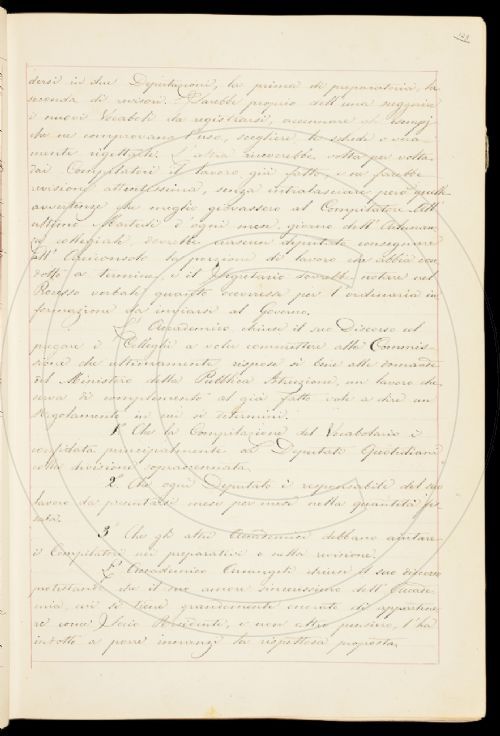 dersi in due Deputazioni, la prima di preparatori, la
seconda di revisori. Sarebbe proprio dell'una suggerire
i nuovi Vocaboli da registrarsi, accennare
che ne comprovano l'uso, scegliere le schede o vera-
mente rigettarle. L'altra riceverebbe volta per volta
dai Compilatori il lavoro già fatto, e ne farebbe
revisione attentissima, senza intralasciare però quelle
avvertenze che meglio giovassero al Compilatore. All'
ultimo Martedì d'ogni mese, giorno dell'Adunan-
za collegiale, dovrebbe ciascun deputato consegnare
all'Arciconsolo la porzione di lavoro che abbia con
dotto a termine, e il Segretario dovrebbe notare nel
Processo verbale quanto occorresse per l'ordinaria in
formazione da inviarsi al Governo.
L'Accademico chiuse il suo Discorso col
pregare i Colleghi a voler commettere alla Commis-
sione che ultimamente rispose sì bene alle domande
del Ministro della Pubblica Istruzione, un lavoro che
serva di compimento al già fatto vale a dire un
Regolamento in cui si determini.
1° Che la Compilazione del Vocabolario è
confidata principalmente ai Deputati Quotidiani
colla divisione sopraccennata.
2° Che ogni Deputato è responsabile del suo
lavoro da presentarsi mese per mese nella quantità fis
sata.
3° Che gli altri Accademici debbano aiutare
i Compilatori nei preparativi e nella revisione.
L'Accademico Arcangeli chiuse il suo discorso
protestando che il suo amore sincerissimo dell'Accade-
mia, cui si tiene grandemente onorato di appartene-
re come Socio Residente, e non altro pensiero, l'ha
indotto a porre innanzi la rispettosa proposta.